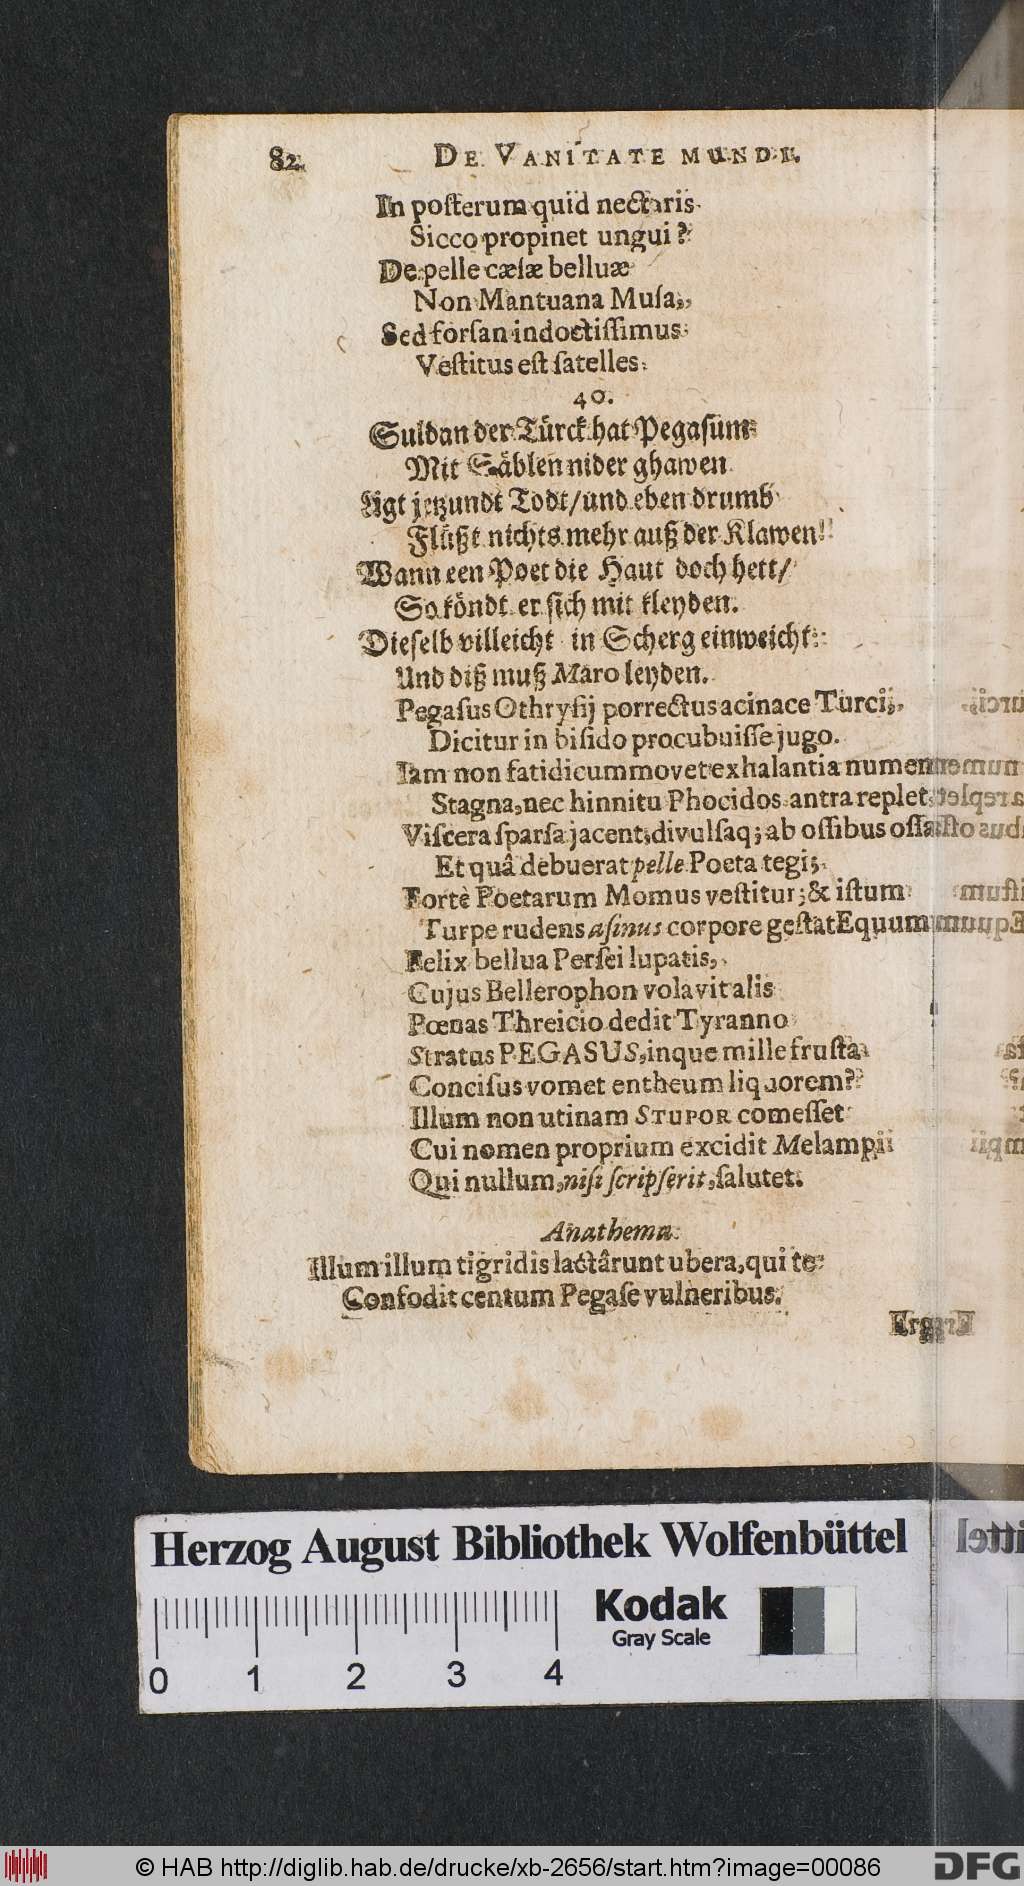 82 DE VANITATE MUNDI.
In poſterum quid nectaris
Sicco propinet ungui?
De pelle cæſæ belluæ
Non Mantuana Muſa,
Sed forſan indoctiſſimus
Veſtitus eſt ſatelles.
40.
Suldan der Türck hat Pegaſum
Mit Säblen nider ghawen
Ligt jetzundt Todt/und eben drumb
Flüßt nichts mehr auß der Klawen!
Wann een Poet die Haut doch hett/
So köndt er ſich mit kleyden.
Dieſelb villeicht in Scherg einweicht:
Und diß muß Maro leyden.
Pegaſus Othryſij porrectus acinace Turci,
Dicitur in biſido procubuiſſe jugo.
Iam non fatidicum movet exhalantia numen
Stagna, nec hinnitu Phocidos antra replet,
Viſcera ſparſa jacent, divulſaq; ab oſſibus oſſa
Et quâ debuerat pelle Poeta tegi;
Fortè Poetarum Momus veſtitur; & iſtum
Turpe rudens aſinus corpore geſtat Equum
Felix bellua Perſei lupatis,
Cujus Bellerophon volavit alis
Pœnas Threicio dedit Tyranno
Stratus PEGASUS, inque mille fruſta
Conciſus vomet entheum liquorem?
Illum non utinam STUPOR comeſſet
Cui nomen proprium excidit Melampii
Qui nullum, niſi ſcripſerit, ſalutet.
Anathema.
Illum illum tigridis lactârunt ubera, qui te
Confodit centum Pegaſe vulneribus.
Herzog August Bibliothek Wolfenbüttel
Kodak
Gray Scale
0 1 2 3 4
© HAB http://diglib.hab.de/drucke/xb-2656/start.htm?image=00086
DFG